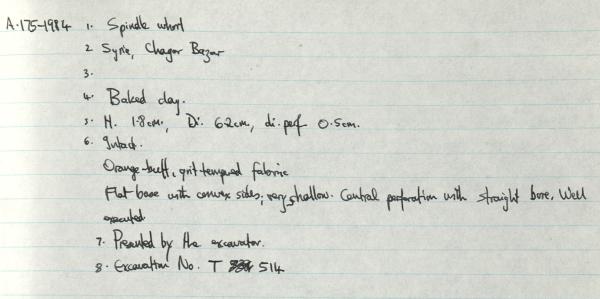 A.175-1984 1. Spindle whorl
2 Syria, Chagar Bazar
3.
4. Baked clay.
5. H. 1.8cm, Di. 6.2cm, di.perf 0.5cm.
6. Intact.
Orange-buff, grit-tempered fabric
Flat base with convex sides; very shallow. Central perforation with straight bore. Well
executed
7. Presented by the excavator.
8. Excavation No. T 514